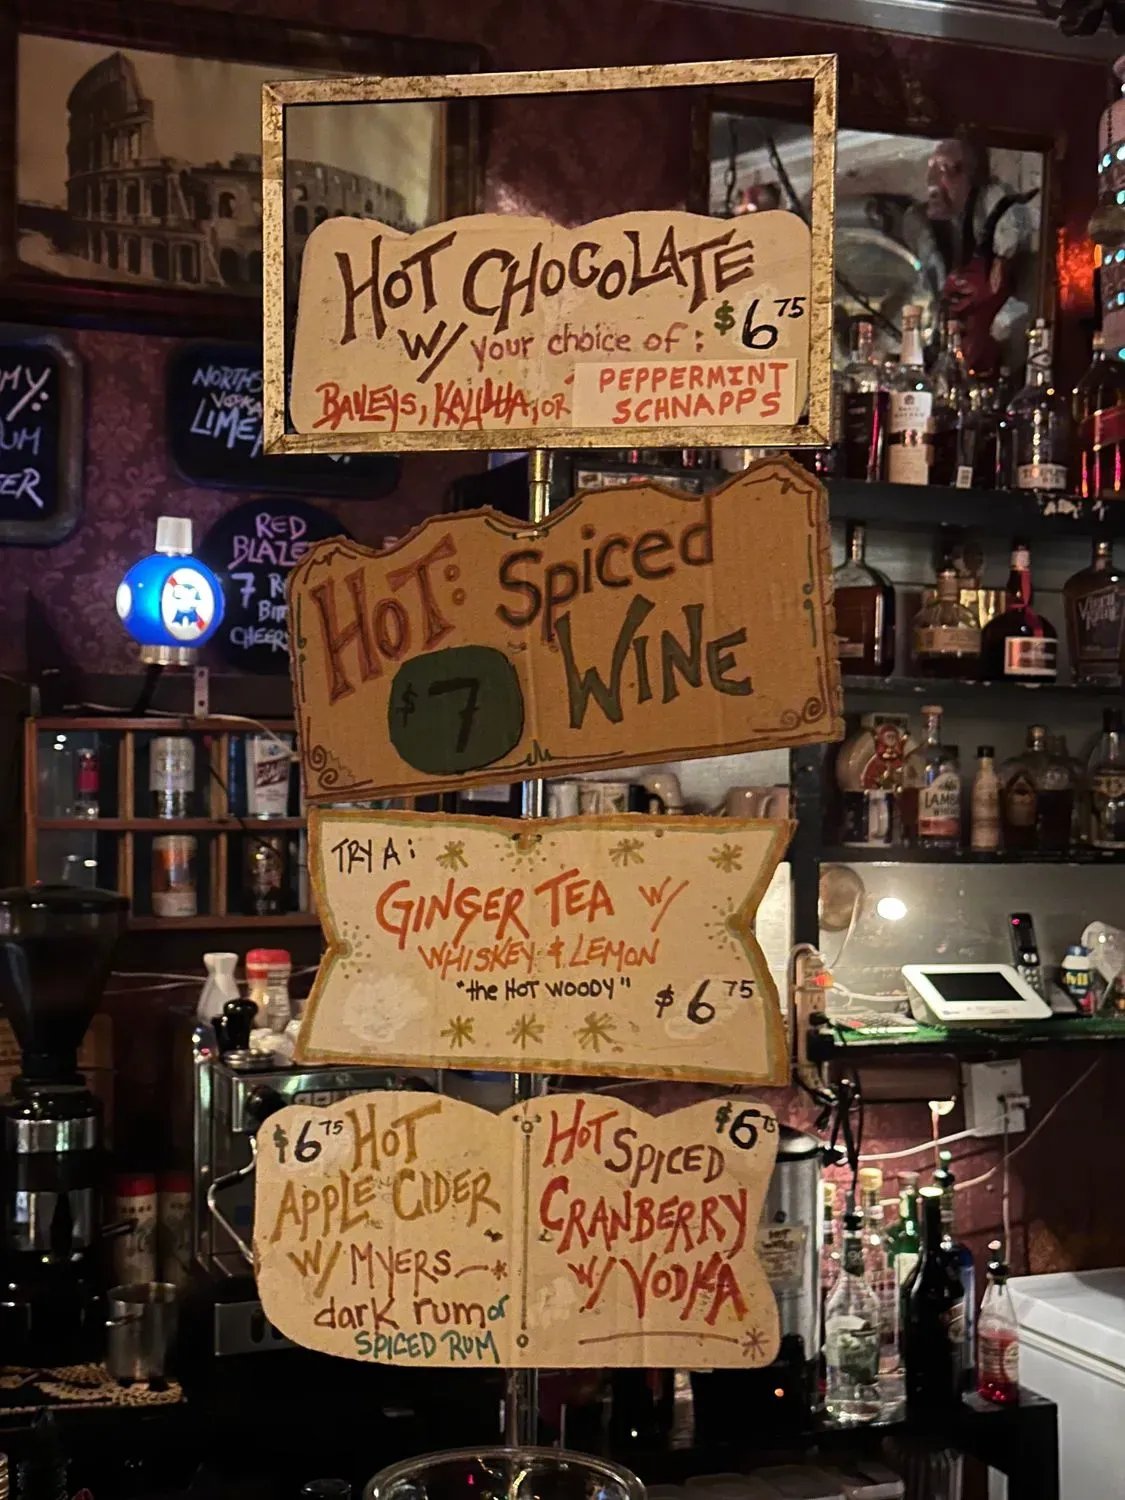 HOT CHOCOLATE
W/ your choice of: $6 75
BAILEYS, KALUHA, OR PEPPERMINT
SCHNAPPS
HOT: Spiced
WINE
$7
TRY A:
GINGER TEA W/
WHISKEY & LEMON
"the HOT WOODY"
$6 75
$6 75 HOT
APPLE CIDER
W/ MYERS
dark rum or
SPICED RUM
HOT $6 75
SPICED
CRANBERRY
W/ VODKA
RED
BLAZE
7
CHEER
VODKA
LIME
UM